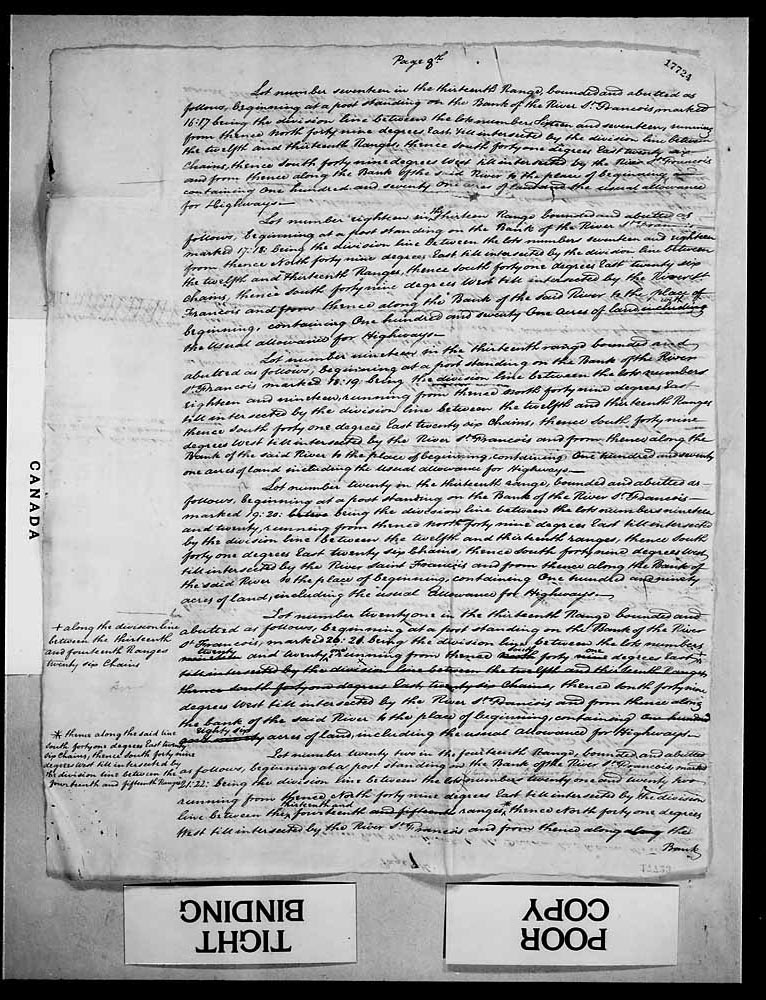 Page 8th
17724
Lot number seventeen in the thirteenth Range, bounded and abutted as
follows, beginning at a post standing on the Bank of the River St. Francois, marked
16:17 being the division line between the lots numbers sixteen and seventeen, running
from thence North forty nine degrees East till intersected by the division line between
the twelfth and thirteenth Ranges, thence South forty one degrees East twenty six
Chains, thence South forty nine degrees West till intersected by the River St. Francois
and from thence along the Bank of the said River to the place of beginning
containing One hundred and seventy One acres of land the usual allowance
for Highways—
Lot number eighteen in the thirteen Range bounded and abutted as
follows, beginning at a post standing on the Bank of the River St. Francois
marked 17:18: being the division line Between the lots numbers seventeen and eighteen
from thence North forty nine degrees East till intersected by the division line between
the twelfth and thirteenth Ranges, thence South forty one degrees East twenty six
Chains, thence South forty nine degrees West till intersected by the River St.
Francois and from thence along the Bank of the said River to the place of
beginning, containing One hundred and seventy One acres of land including with
the Usual allowance for Highways—
Lot number nineteen in the thirteenth range bounded and
abutted as follows, beginning at a post standing on the Bank of the River
St. Francois marked 18:19: being the division line between the lots numbers
eighteen and nineteen, running from thence North forty nine degrees East
till intersected by the division line between the twelfth and thirteenth Ranges
thence South forty one degrees East twenty six Chains, thence South forty nine
degrees West till intersected by the River St. Francois and from thence along the
Bank of the said River to the place of beginning, containing One hundred and seventy
one acres of land including the Usual allowance for Highways—
Lot number twenty in the thirteenth range, bounded and abutted as
follows, beginning at a post standing on the Bank of the River St. Francois—
marked 19:20: being the division line between the lots numbers nineteen
and twenty, running from thence North forty nine degrees East till intersected
by the division line between the twelfth and thirteenth ranges, thence South
forty one degrees East twenty six Chains, thence South forty nine degrees West
till intersected by the River Saint Francois and from thence along the Bank of
the said River to the place of beginning, containing One hundred and ninety
acres of land, including the usual Allowance for Highways—
Lot number twenty one in the thirteenth Range bounded and
abutted as follows, beginning at a post standing on the Bank of the River
St. Francois, marked 20:21. being the division line between the lots numbers
twenty one South one
nineteen and twenty, running from thence North forty nine degrees East
till intersected by the division line between the twelfth and thirteenth Ranges,
thence South forty one degrees East, twenty six Chains, thence South forty nine
degrees West till intersected by the River St. Francois and from thence along
the bank of the said River to the place of beginning, containing One hundred
eighty six
and acres of land, including the usual Allowance for Highways—
Lot number twenty two in the fourteenth Range, bounded and abutted
as follows, beginning at a post standing on the Bank of the River St. Francois, marked
21:22: being the division line between the lots number twenty one and twenty two
running from thence North forty nine degrees East till intersected by the division
thirteenth and
line between the fourteenth and fifteenth ranges* thence North forty one degrees
West till intersected by the River St. Francois and from thence along along the
Bank
+ along the division line
between the thirteenth
and fourteenth Ranges
twenty six Chains
* thence along the said line
South forty one degrees East twenty
six Chains, thence South forty nine
degrees West till intersected by
the division line between the
fourteenth and fifteenth Ranges
CANADA
TIGHT
BINDING
POOR
COPY